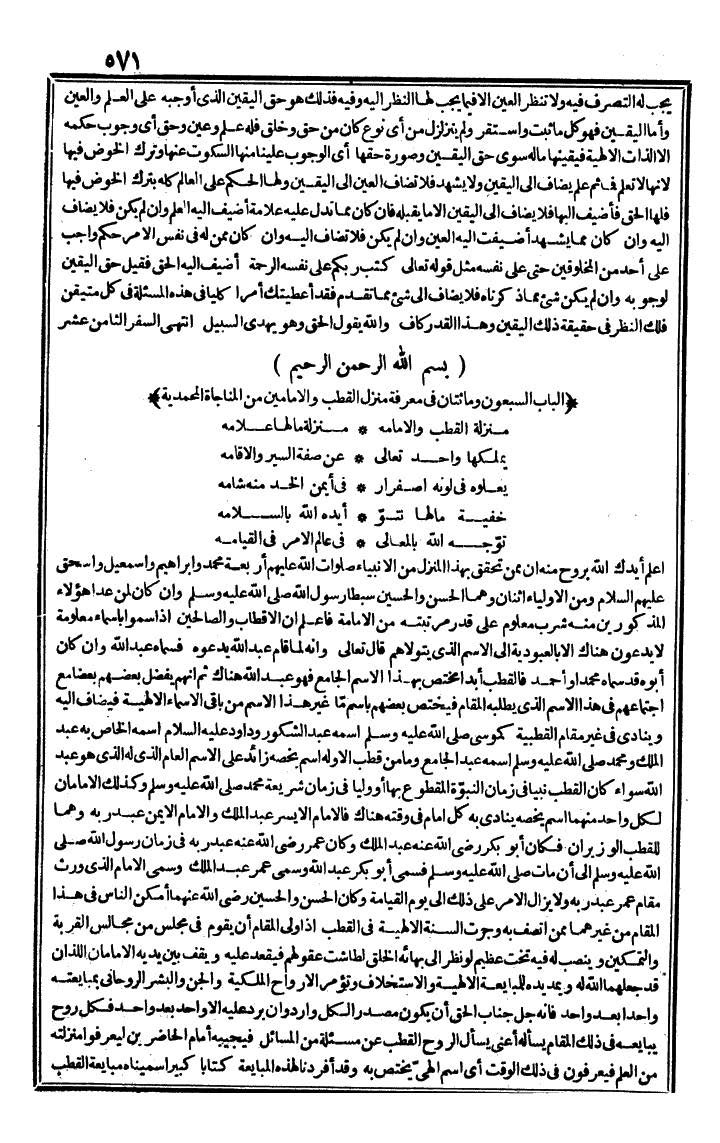 ٥٧١
يجب له التصرف فيه ولا تنظر العين الا فيما يجب لها النظر اليه وفيه فذلك هو حق اليقين الذى أوجبه على العلم والعين
وأما اليقين فهو كل ما ثبت واستقر ولم يتزلزل من أى نوع كان من حق وخلق فله علم وعين وحق أى وجوب حكمه
الا الذات الالهية فيقينها ماله سوى حق اليقين وصورة حقها أى الوجوب علينا منها السكوت عنها وترك الخوض فيها
لانها لا تعلم فما ثم علم يضاف الى اليقين ولا يشهد فلا تضاف العين الى اليقين ولها الحكم على العالم كله بترك الخوض فيها
فلها الحق فأضيف اليها فلا يضاف الى اليقين الا ما يقبله فان كان مما تدل عليه علامة أضيف اليه العلم وان لم يكن فلا يضاف
اليه وان كان مما يشهد أضيفت اليه العين وان لم يكن فلا تضاف اليه وان كان ممن له فى نفس الامر حكم واجب
على أحد من المخلوقين حتى على نفسه مثل قوله تعالى كتب ربكم على نفسه الرحمة أضيف اليه الحق فقيل حق اليقين
لوجوبه وان لم يكن شئ مما ذكرناه فلا يضاف الى شئ مما تقدم فقد أعطيتك أمرا كليا فى هذه المسئلة فى كل متيقن
فلك النظر فى حقيقة ذلك اليقين وهذا القدر كاف والله يقول الحق وهو يهدى السبيل انتهى السفر الثامن عشر
( بسم الله الرحمن الرحيم )
﴿الباب السبعون ومائتان فى معرفة منزل القطب والامامين من المناجاة المحمدية﴾
منزلة القطب والامامه * منزلة مالها علامه
يملكها واحد تعالى * عن صفة السير والاقامه
يعلوه فى لونه اصفرار * فى أيمن الخد منه شامه
خفية مالها نتوّ * أيده الله بالسلامه
توّجه الله بالمعالى * فى عالم الامر فى القيامه
اعلم أيدك الله بروح منه ان ممن تحقق بهذا المنزل من الانبياء صلوات الله عليهم أربعة محمد وابراهيم واسمعيل واسحق
عليهم السلام ومن الاولياء اثنان وهما الحسن والحسين سبطا رسول الله صلى الله عليه وسلم وان كان لمن عدا هؤلاء
المذكورين منه شرب معلوم على قدر مرتبته من الامامة فاعلم ان الاقطاب والصالحين اذا سموا باسماء معلومة
لا يدعون هناك الا بالعبودية الى الاسم الذى يتولاهم قال تعالى وانه لما قام عبد الله يدعوه فسماه عبد الله وان كان
أبوه قد سماه محمدا وأحمد فالقطب أبدا مختص بهذا الاسم الجامع فهو عبد الله هناك ثم انهم يفضل بعضهم بعضا مع
اجتماعهم فى هذا الاسم الذى يطلبه المقام فيختص بعضهم باسم مّا غير هذا الاسم من باقى الاسماء الالهية فيضاف اليه
وينادى فى غير مقام القطبية كموسى صلى الله عليه وسلم اسمه عبد الشكور وداود عليه السلام اسمه الخاص به عبد
الملك ومحمد صلى الله عليه وسلم اسمه عبد الجامع وما من قطب الا وله اسم يخصه زائد على الاسم العام الذى له الذى هو عبد
الله سواء كان القطب نبيا فى زمان النبوّة المقطوع بها أو وليا فى زمان شريعة محمد صلى الله عليه وسلم وكذلك الامامان
لكل واحد منهما اسم يخصه ينادى به كل امام فى وقته هناك فالامام الايسر عبد الملك والامام الايمن عبد ربه وهما
للقطب الوزيران فكان أبو بكر رضى الله عنه عبد الملك وكان عمر رضى الله عنه عبد ربه فى زمان رسول الله صلى
الله عليه وسلم الى أن مات صلى الله عليه وسلم فسمى أبو بكر عبد الله وسمى عمر عبد الملك وسمى الامام الذى ورث
مقام عمر عبد ربه ولا يزال الامر على ذلك الى يوم القيامة وكان الحسن والحسين رضى الله عنهما أمكن الناس فى هذا
المقام من غيرهما ممن اتصف به وجرت السنة الالهية فى القطب اذا ولى المقام أن يقوم فى مجلس من مجالس القربة
والتمكين وينصب له فيه تخت عظيم لو نظر الى بهائه الخلق لطاشت عقولهم فيقعد عليه ويقف بين يديه الامامان اللذان
قد جعلهما الله له ويمد يده للمبايعة الالهية والاستخلاف وتؤمر الارواح الملكية والجن والبشر الروحانى بمبايعته
واحدا بعد واحد فانه جل جناب الحق أن يكون مصدر الكل وارد وان يرد عليه الا واحد بعد واحد فكل روح
يبايعه فى ذلك المقام يسأله أعنى يسأل الروح القطب عن مسئلة من المسائل فيجيبه أمام الحاضرين ليعرفوا منزلته
من العلم فيعرفون فى ذلك الوقت أى اسم الهىّ يختص به وقد أفردنا لهذه المبايعة كتابا كبيرا سميناه مبايعة القطب